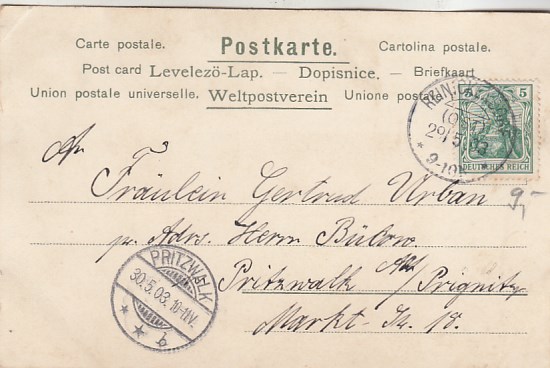 Carte postale. Postkarte. Cartolina postale.
Post card Levelezö-Lap. — Dopisnice. — Briefkaart
Union postale universelle. Weltpostverein Unione postale
29/5 03
* 9-10 *
5
DEUTSCHES REICH
An
Fräulein Gertrud Urban
p. Adrs. Herrn Bülow.
Pritzwalk / Prignitz
Markt-Str. 18.
9,-
PRITZWALK
30.5.03. 10-11V.
* * b